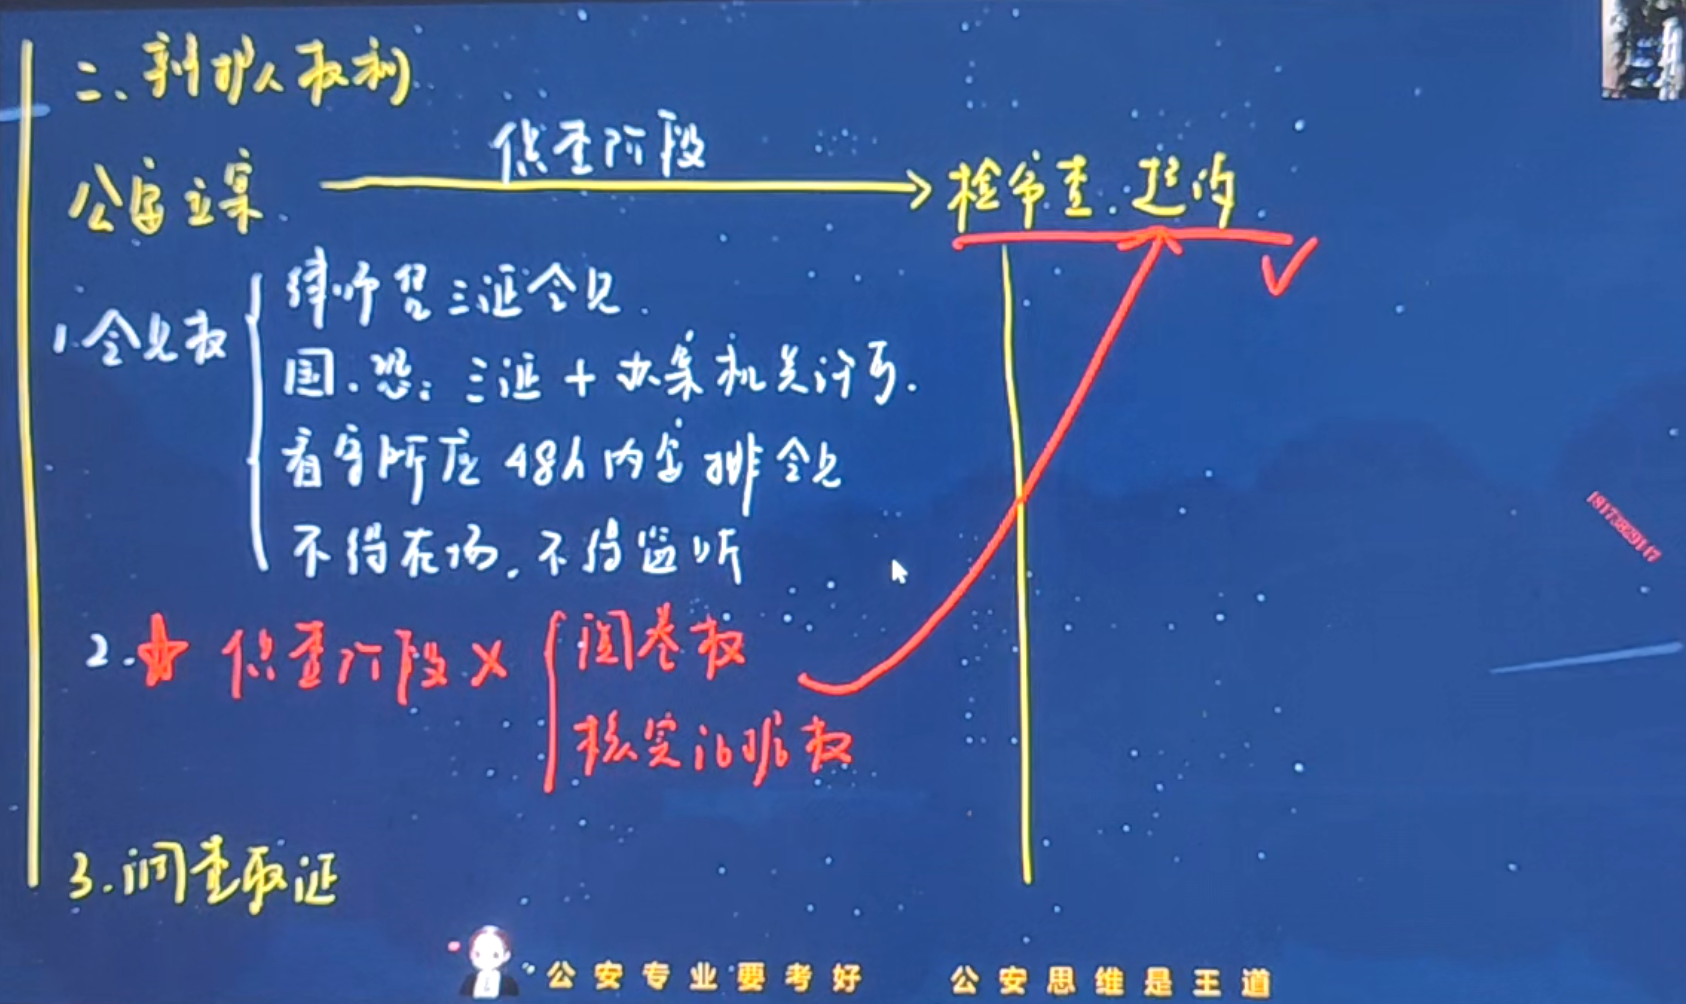 二、辩护人权利
侦查阶段
公安立案 检审查.起诉
1.会见权
律师凭三证会见.
国、恐:三证+办案机关许可.
看守所应48h内安排会见
不得在场.不得监听
2. 侦查阶段×
阅卷权
核实证据权
3.调查取证
18173829147
公安专业要考好 公安思维是王道